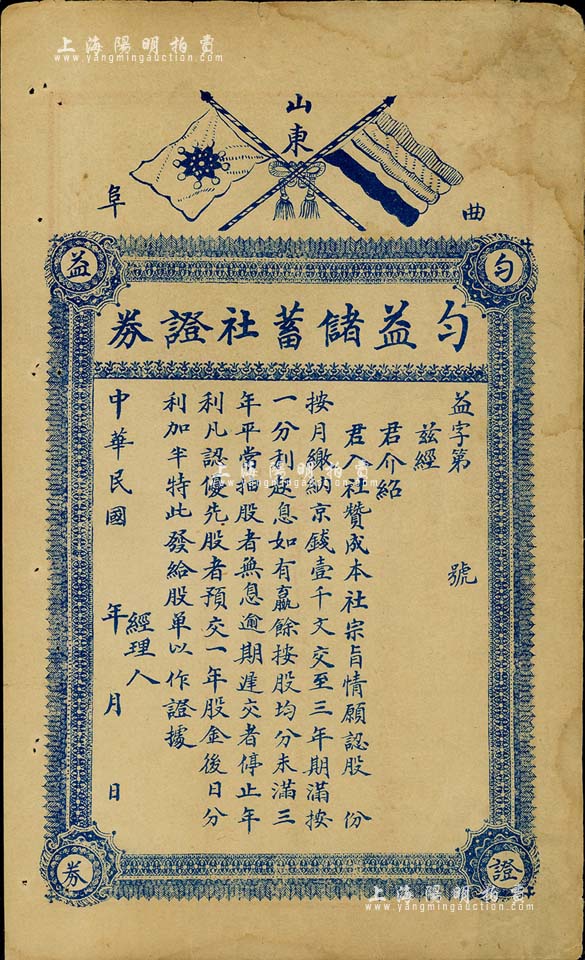 上海陽明拍賣
www.yangmingauction.com
山東
曲阜
勻益
證券
勻益儲蓄社證券
益字第 號
茲經
君介紹
君入社贊成本社宗旨情願認股 份
按月繳納京錢壹千文交至三年期滿按
一分利起息如有贏餘按股均分未滿三
年平常抽股者無息逾期遲交者停止年
利凡認優先股者預交一年股金後日分
利加半特此發給股單以作證據
經理人
中華民國 年 月 日
上海陽明拍賣
www.yangmingauction.com
上海陽明拍賣
www.yangmingauction.com